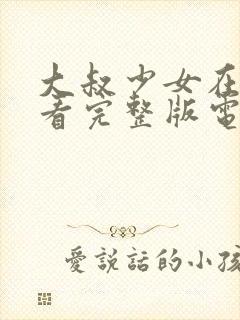 大叔少女在
看完整版電
愛說話的小孩